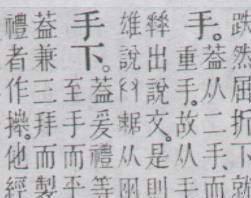 跌然屈折下就
手。
葢从二手、而
重手。故从手
釋出說文。是則
雄說从兩
手下。
葢爰禮等
至手而平
葢兼三拜而製
禮者作他經